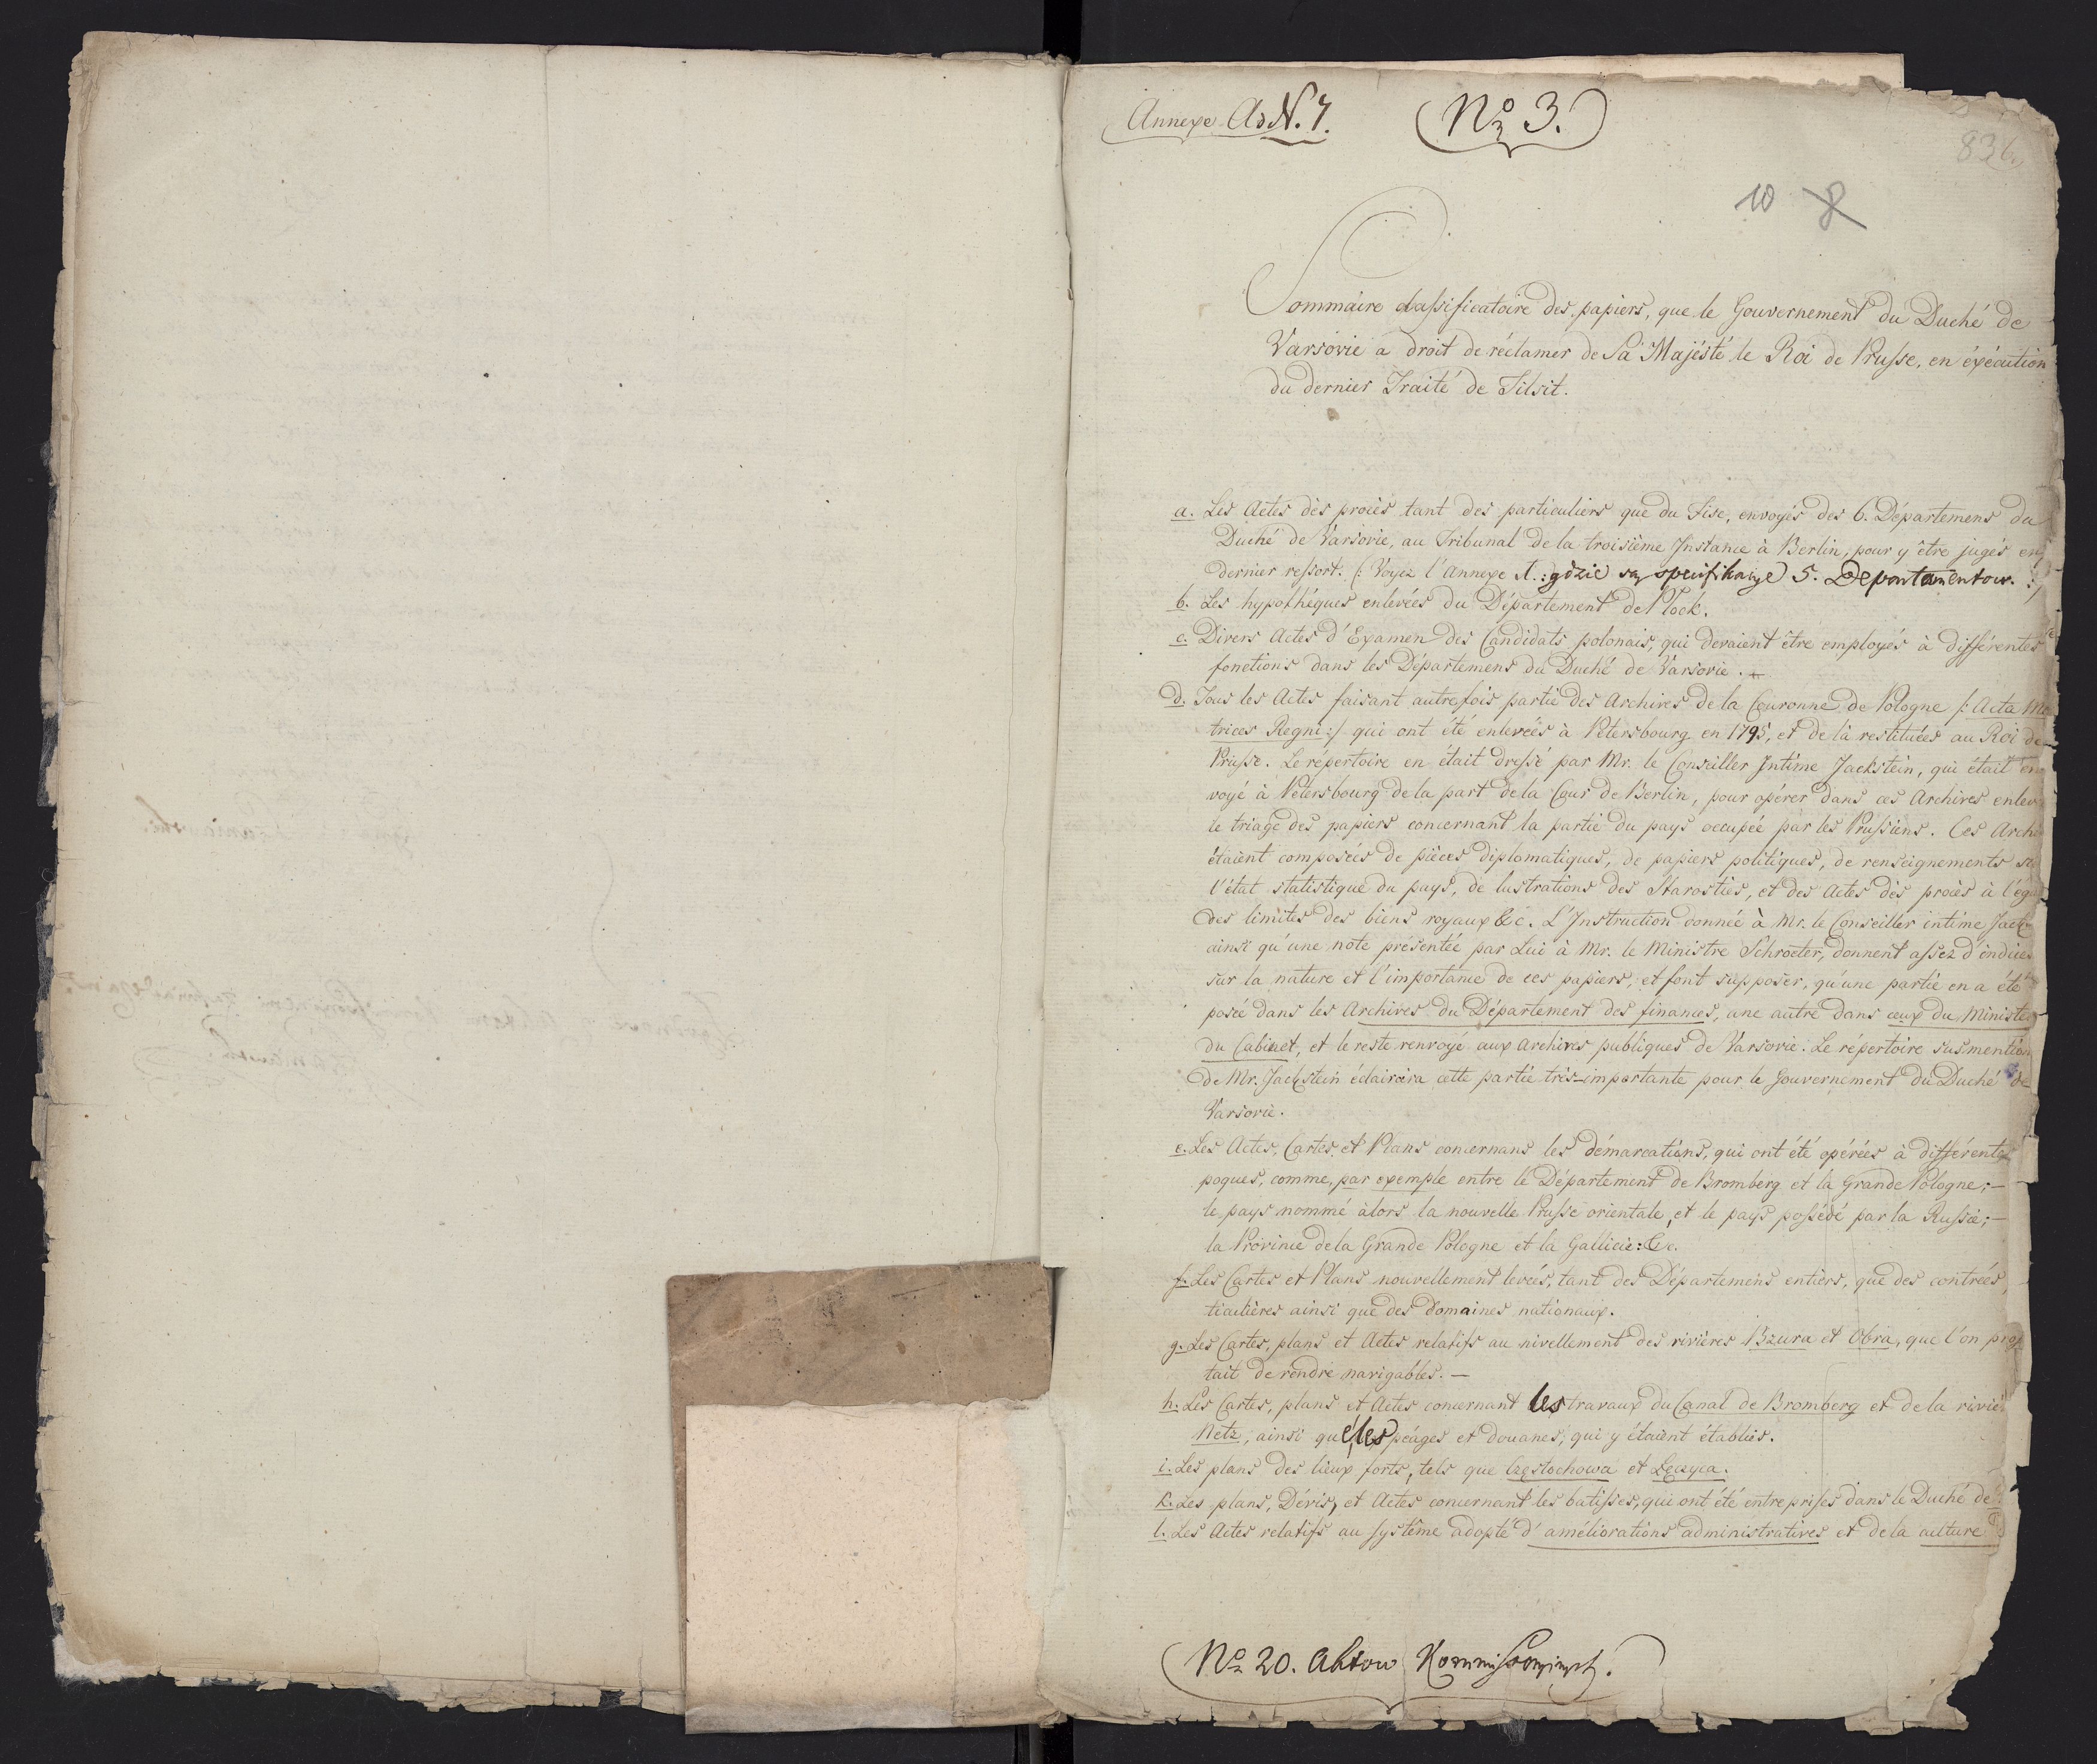 Annexe Ad N. 7.
(Nº 3.)
836
10 8
Sommaire classificatoire des papiers, que le Gouvernement du Duché de
Varsovie a droit de réclamer de Sa Majesté le Roi de Prusse, en éxécution
du dernier Traité de Tilsit.
a. Les Actes dès procès tant des particuliers que du Fisc, envoyés des 6. Départemens du
Duché de Varsovie, au Tribunal de la troisième Instance à Berlin, pour y être jugés en
dernier ressort. (: Voyez l'Annexe A. : gdzie są specifikacye 5. Departamentow. :)
b. Les hypothéques enlevées du Département de Plock.
c. Divers Actes d'Examen des Candidats polonais, qui devaient être employés à différentes
fonctions dans les Départemens du Duché de Varsovie.
d. Tous les Actes faisant autrefois partie des Archives de la Couronne de Pologne /: Acta Me
trices Regni :/ qui ont été enlevées à Petersbourg en 1795, et de là restituées au Roi de
Prusse. Le répertoire en était dressé par Mr. le Conseiller Intime Jackstein, qui était en
voyé à Petersbourg de la part de la Cour de Berlin, pour opérer dans ces Archives enlev
le triage des papiers concernant la partie du pays occupée par les Prussiens. Ces Archi
étaient composées de pièces diplomatiques, de papiers politiques, de renseignements su
l'état statistique du pays, de lustrations des Starosties, et des Actes dès procès à l'éga
des limites des biens royaux &c. L'Instruction donnée à Mr. le Conseiller intime Jack
ainsi qu'une note présentée par Lui à Mr. le Ministre Schroeter, donnent assez d'indices
sur la nature et l'importance de ces papiers, et font supposer, qu'une partie en a été
posée dans les Archives du Département des finances, une autre dans ceux du Ministe
du Cabinet, et le reste renvoyé aux Archives publiques de Varsovie. Le répertoire susmention
de Mr. Jackstein éclaircira cette partie très-importante pour le Gouvernement du Duché de
Varsovie.
e. Les Actes, Cartes et Plans concernans les démarcations, qui ont été opérées à différentes
poques, comme, par exemple entre le Département de Bromberg et la Grande Pologne; —
le pays nommé alors la nouvelle Prusse orientale, et le pays possédé par la Russie; —
la Province de la Grande Pologne et la Gallicie: &c.
f. Les Cartes et Plans nouvellement levées, tant des Départemens entiers, que des contrées,
ticulières ainsi que des Domaines nationaux.
g. Les Cartes, plans et Actes relatifs au nivellement des rivières Bzura et Obra, que l'on proj
tait de rendre navigables. —
h. Les Cartes, plans et Actes concernant les travaux du Canal de Bromberg et de la riviè
Netz, ainsi que les péages et douanes, qui y étaient établies.
i. Les plans des lieux forts, tels que Częstochowa et Łęczyca.
k. Les plans, Dévis, et Actes concernant les batisses, qui ont été entreprises dans le Duché de
l. Les Actes relatifs au systême adopté d'améliorations administratives et de la culture
(Nº 20. Aktow Kommissoryinych.)